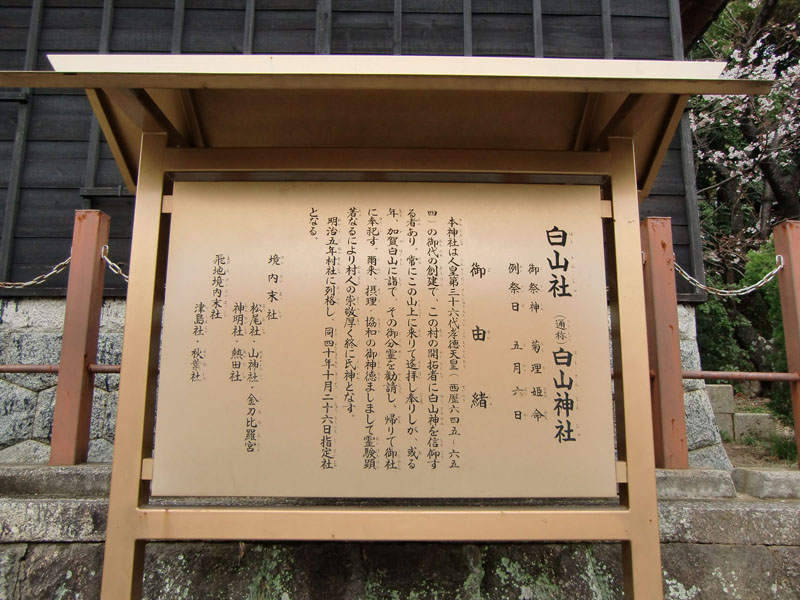 白山社 （通称）白山神社
御祭神 菊理姫命
例祭日 五月六日
御由緒
本神社は人皇第三十六代孝徳天皇（西歴六四五～六五
四）の御代の創建で、この村の開拓者に白山神を信仰す
る者あり。常にこの山上に来りて遙拝し奉りしが、或る
年、加賀白山に詣で、その御分霊を勧請し、帰りて御社
に奉祀す。爾来、摂理、協和の御神徳ましまして霊験顕
著なるにより村人の崇敬厚く終に氏神となす。
明治五年村社に列格し、同四十年十月二十六日指定社
となる。
境内末社
松尾社・山神社・金刀比羅宮
神明社・熱田社
飛地境内末社
津島社・秋葉社